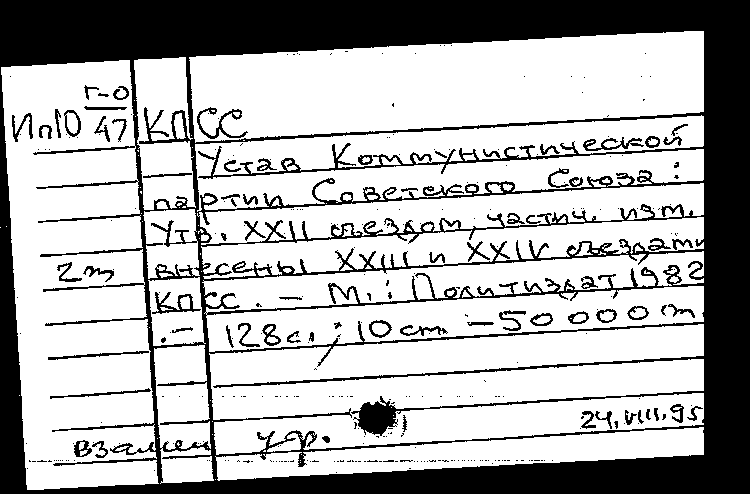 Г-0
Ип10 47 КПСС
Устав Коммунистической
партии Советского Союза:
Утв. XXII съездом, частич. изм.
2т внесены XXIII и XXIV съездами
КПСС. – М.: Политиздат, 1982
.– 128с.; 10см – 50000т.
24.VIII.95.
взамен утр.